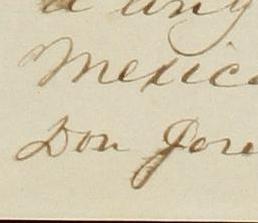 a any
Mexic
Don Jose